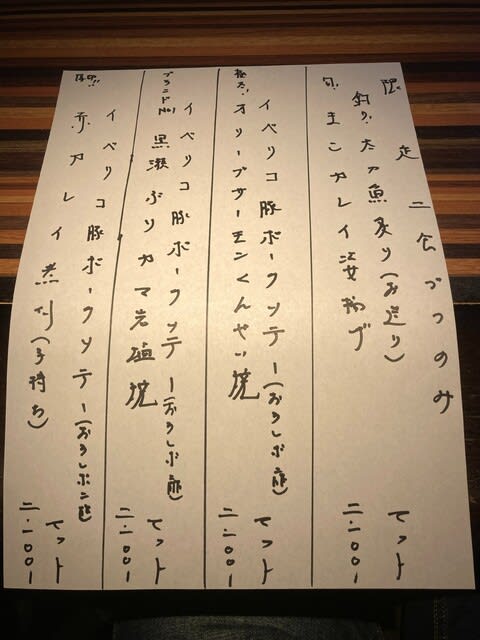 限定二食づつのみ
釣り。太刀魚炙り(お造り)
旬!まこカレイ姿揚げ
セット
二.二〇〇-
イベリコ豚ポークソテー(おろしポン酢)
オリーブサーモンくんせい焼
セット
二.二〇〇-
イベリコ豚ポークソテー(おろしポン酢)
ブランドNo1 黒瀬ぶりカマ岩塩焼
セット
二.二〇〇-
イベリコ豚ポークソテー(おろしポン酢)
赤カレイ煮付(子持ち)
セット
二.二〇〇-